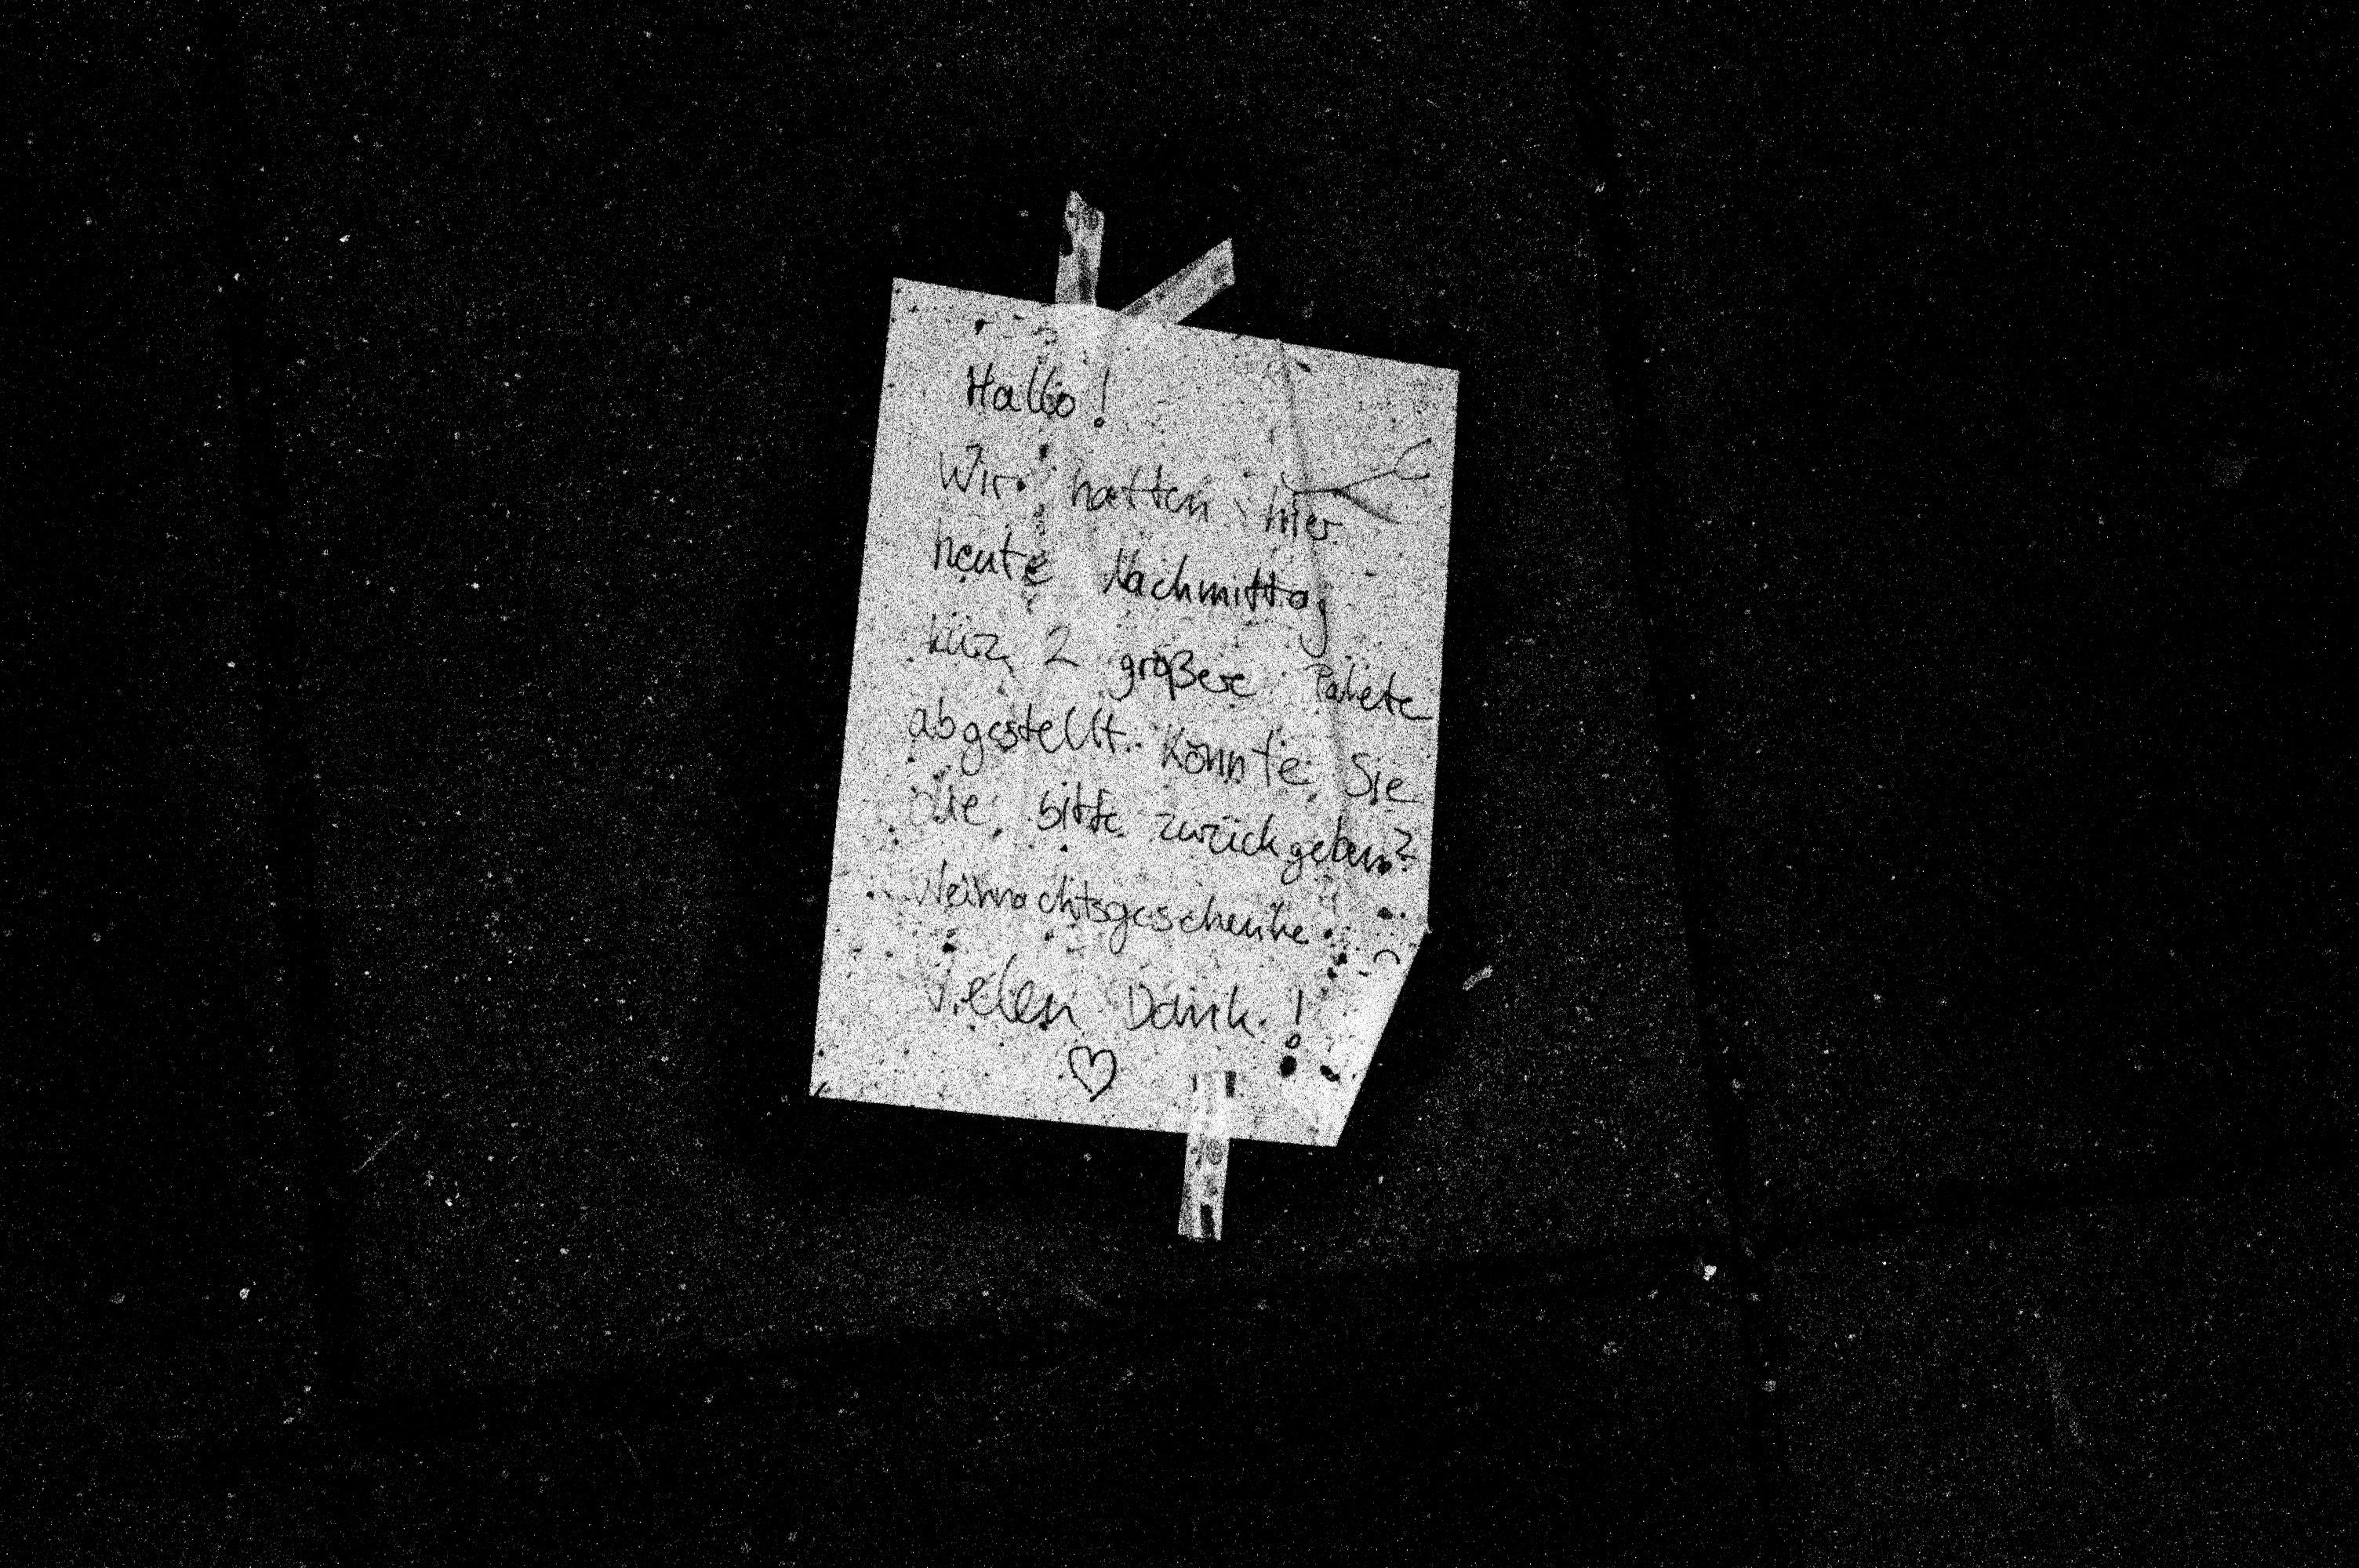 Hallo!
Wir hatten hier
heute Nachmittag
kurz 2 größere Pakete
abgestellt. Könnte Sie
die bitte zurückgeben?
Weihnachtsgeschenke
Vielen Dank!